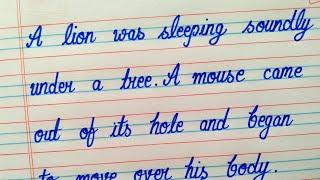 A lion was sleeping soundly
under a tree. A mouse came
out of its hole and began
to move over his body.